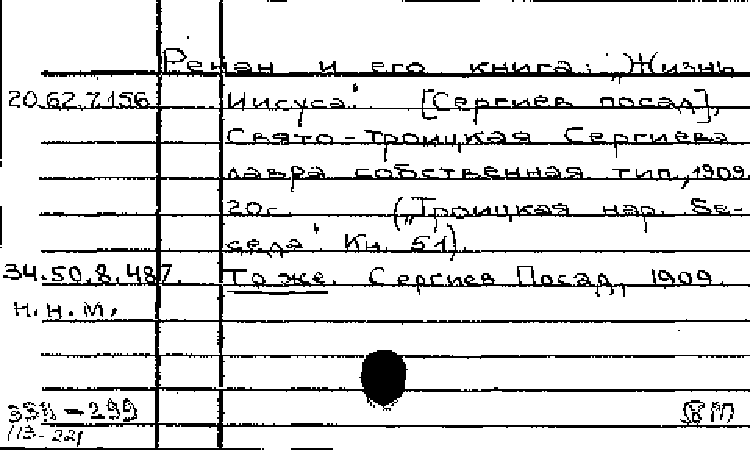 Ренан и его книга: „Жизнь
20.62.7.156 Иисуса". [Сергиев посад],
Свято-Троицкая Сергиева
лавра собственная тип., 1909.
20с. („Троицкая нар. Бе-
седа". Кн. 51).
34.50.8.487. То же. Сергиев Посад, 1909.
Н.Н.М.
113-221